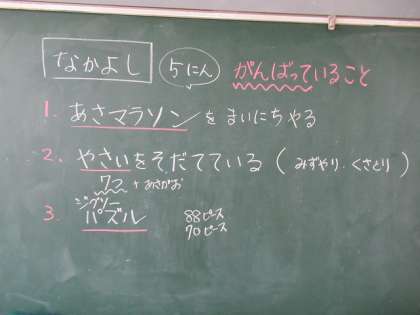 なかよし 5にん がんばっていること
1. あさマラソンを まいにちやる
2. やさいをそだてている (みずやり．くさとり)
7つ + あさがお
3. ジグソー
パズル 88ピース
70ピース